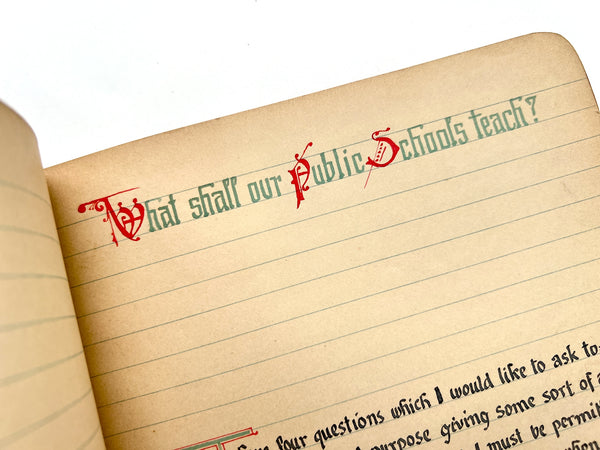 What shall our Public Schools teach?
four questions which I would like to ask to
purpose giving some sort of a
I must be permit
when